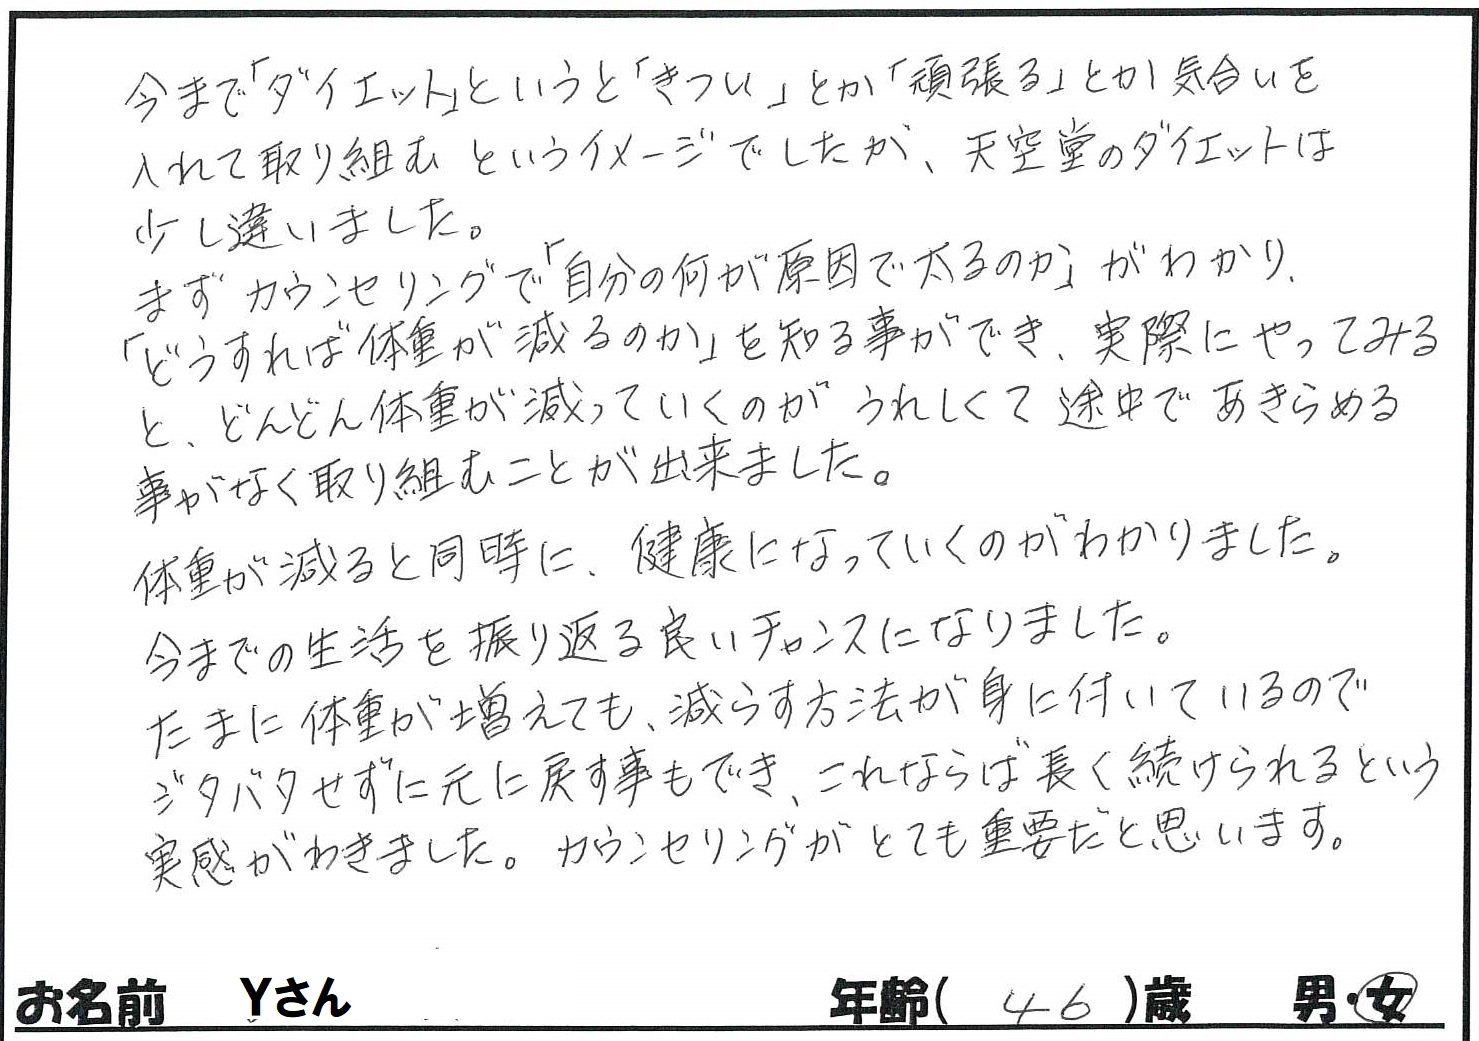 今まで「ダイエット」というと「きつい」とか「頑張る」とか気合いを
入れて取り組む というイメージでしたが、天空堂のダイエットは
少し違いました。
まずカウンセリングで「自分の何が原因で太るのか」がわかり、
「どうすれば体重が減るのか」を知る事ができ、実際にやってみる
と、どんどん体重が減っていくのが うれしくて途中であきらめる
事がなく取り組むことが出来ました。
体重が減ると同時に、健康になっていくのがわかりました。
今までの生活を振り返る良いチャンスになりました。
たまに体重が増えても、減らす方法が身に付いているので
ジタバタせずに元に戻す事もでき、これならば長く続けられるという
実感がわきました。カウンセリングがとても重要だと思います。
お名前 Yさん 年齢( 46 )歳 男・女